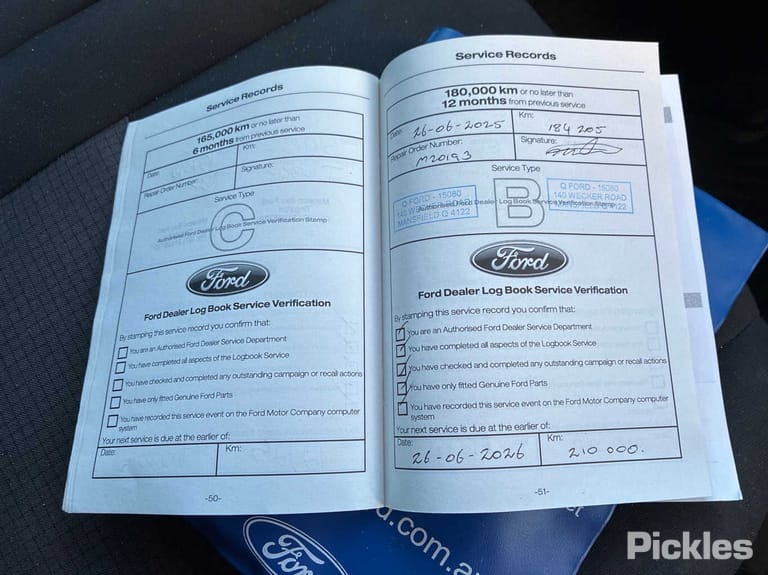 Service Records
165,000 km or no later than
6 months from previous service
Date:
Km:
Repair Order Number:
Signature:
Service Type
C
Authorised Ford Dealer Log Book Service Verification Stamp
Ford
Ford Dealer Log Book Service Verification
By stamping this service record you confirm that:
You are an Authorised Ford Dealer Service Department
You have completed all aspects of the Logbook Service
You have checked and completed any outstanding campaign or recall actions
You have only fitted Genuine Ford Parts
You have recorded this service event on the Ford Motor Company computer
system
Your next service is due at the earlier of:
Date:
Km:
-50-
Service Records
180,000 km or no later than
12 months from previous service
Date: 26-06-2025
Km: 184 205
Repair Order Number:
M20193
Signature:
Service Type
B
Q FORD - 15080
140 WECKER ROAD
MANSFIELD Q 4122
Q FORD - 15080
140 WECKER ROAD
MANSFIELD Q 4122
Authorised Ford Dealer Log Book Service Verification Stamp
Ford
Ford Dealer Log Book Service Verification
By stamping this service record you confirm that:
You are an Authorised Ford Dealer Service Department
You have completed all aspects of the Logbook Service
You have checked and completed any outstanding campaign or recall actions
You have only fitted Genuine Ford Parts
You have recorded this service event on the Ford Motor Company computer
system
Your next service is due at the earlier of:
Date:
26-06-2026
Km:
210 000.
-51-
Ford
d.com.a
Pickles